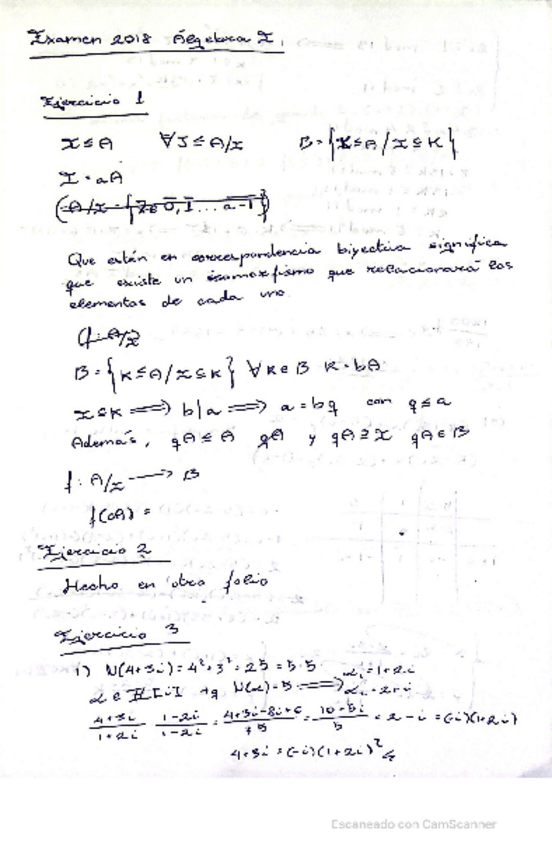 Examen 2018 Álgebra I
Ejercicio 1
I ≤ A ∀J ≤ A/I B = {K ≤ A / I ⊆ K}
I = aA
Que están en correspondencia biyectiva significa
que existe un isomorfismo que relacionará los
elementos de cada uno.
B = {K ≤ A / I ⊆ K} ∀K ∈ B K = bA
I ⊆ K ⟹ b|a ⟹ a = bq con q ≤ a
Además, qA ≤ A qA y qA ⊇ I qA ∈ B
f: A/I ⟶ B
f(0A) =
Ejercicio 2
Hecho en otro folio
Ejercicio 3
1) N(4+3i) = 4² + 3² = 25 = 5·5
α ∈ ℤ[i] tq N(α) = 5 ⟹ α₁ = 1+2i
α₂ = 2+i
(4+3i)/(1+2i) · (1-2i)/(1-2i) = (4+3i-8i+6)/5 = (10-5i)/5 = 2-i = (-i)(1+2i)
4+3i = (-i)(1+2i)²
Escaneado con CamScanner